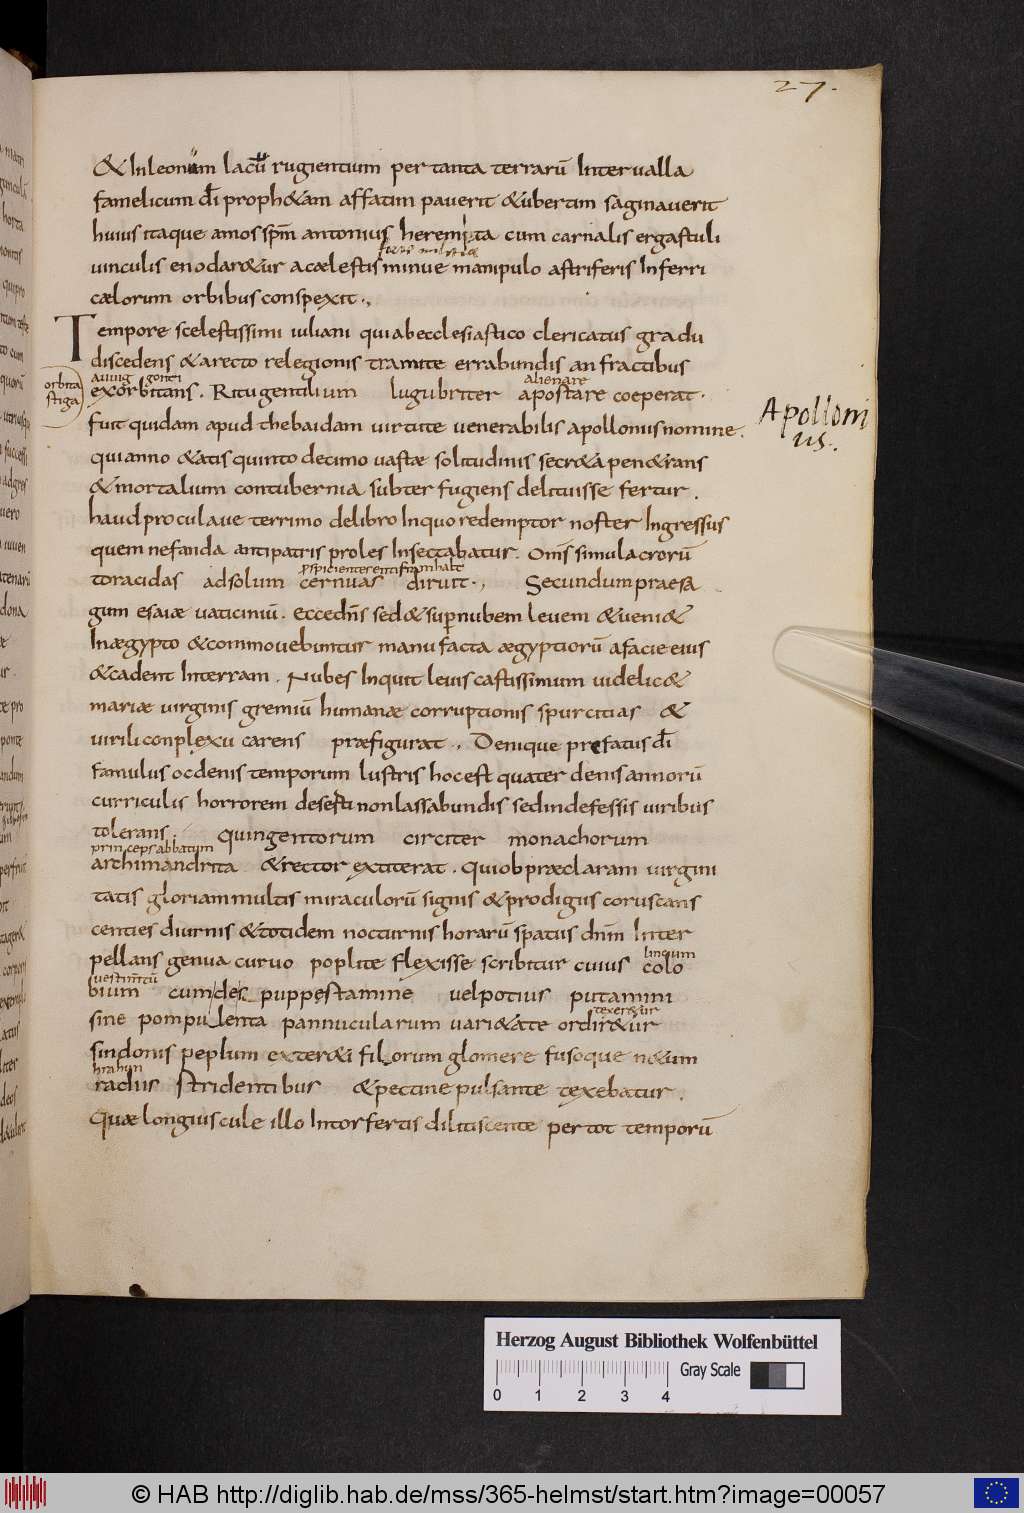 27.
& In leonum lacū rugientium per tanta terrarū Interuallа
famelicum dī proph&am affatim pauerit &ubertim saginauerit
huius itaque amos spm̄ antonius heremita cum carnalis ergastuli
uinculis enodar&ur a cælestis minue manipulo astriferis Inferri
cælorum orbibus conspexit.,
Tempore scelestissimi iuliani qui ab ecclesiastico clericatus gradu
discedens & a recto relegionis tramite errabundis anfractibus
orbita
stiga
alienare
exorbitans. Ritu gentilium lugubriter apostare coeperat.
fuit quidam apud thebaidam uirtute uenerabilis apollonius nomine.
Apolloni
us.
qui anno &atis quinto decimo uastæ solitudinis secr&a pen&rans
& mortalium contubernia subterfugiens delituisse fertur.
haud procul aue terrimo delibro In quo redemptor noster Ingressus
quem nefanda antipatris proles Insectabatur. Om̄s simulacrorū
toracidas ad solum cernuas diruit., Secundum præsa
gum esaiæ uaticiniū. Ecce dn̄s sed& super nubem leuem & ueni&
In ægypto & commouebuntur manufacta ægyptiorū a facie eius
& cadent In terram. Nubes Inquit leuis castissimum uidelic&
mariæ uirginis gremiū humanæ corruptionis spurcitias &
uirili conplexu carens præfigurat., Denique prefatus dī
famulus ocdenis temporum lustris hoc est quater denis annorū
curriculis horrorem deserti non lassabundis sed indefessis uiribus
tolerans. quingentorum circiter monachorum
princeps abbatum
archimandrita & rector extiterat. Qui ob præclaram uirgini
tatis gloriam multis miraculorū signis & prodigiis coruscans
centies diurnis & totidem nocturnis horarū spatiis dnm̄ Inter
pellans genua curuo poplite flexisse scribitur cuius colo
uestimtū
bium cum des puppestamine uel potius putamini
texer&ur
sine pompulenta pannucularum uari&ate ordir&ur
sindonis peplum exter&i filorum glomere fusoque n&um
radiis stridentibus & pectine pulsante texebatur.
Quæ longiuscule illo Intorfertis dilitiscente per tot temporū
Herzog August Bibliothek Wolfenbüttel
Gray Scale
0 1 2 3 4
© HAB http://diglib.hab.de/mss/365-helmst/start.htm?image=00057